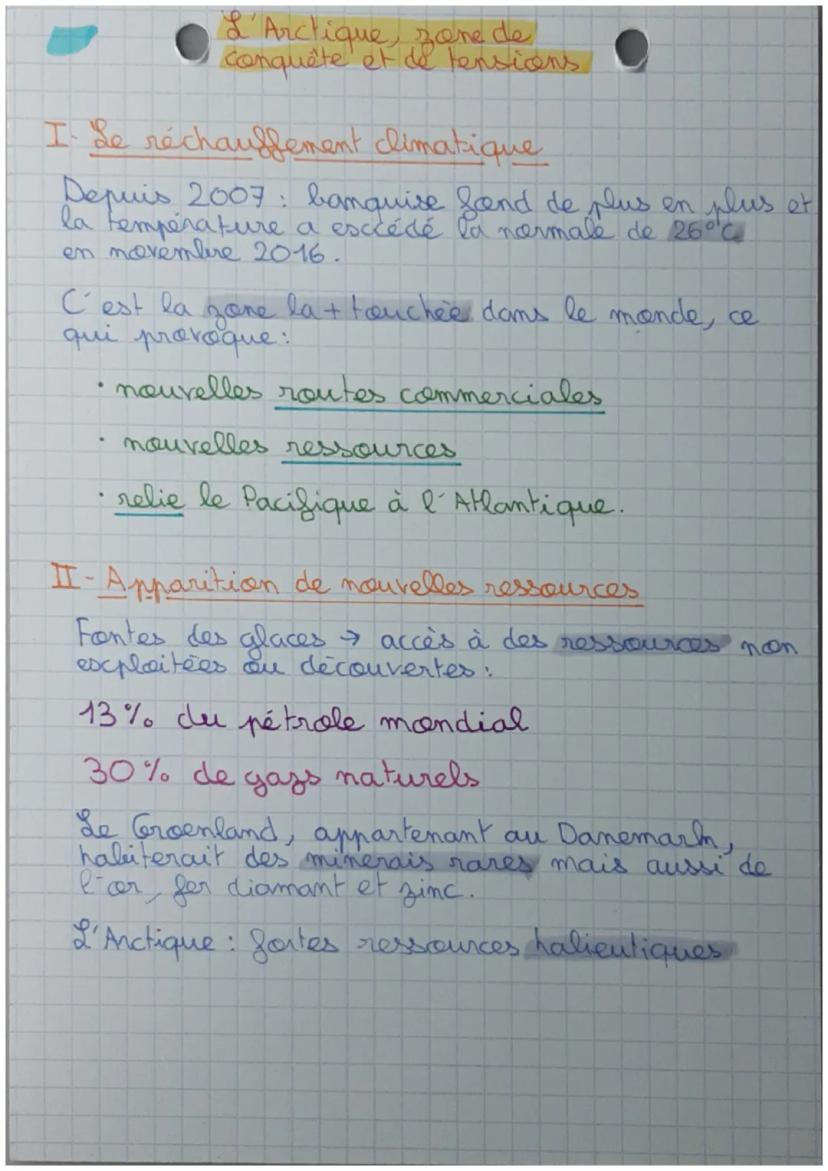 L'Arctique, zone de
conquête et de tensions
I- Le réchauffement climatique
Depuis 2007 : banquise fond de plus en plus et
la température a excédé la normale de 26°C
en novembre 2016.
C'est la zone la + touchée dans le monde, ce
qui provoque :
• nouvelles routes commerciales
• nouvelles ressources
• relie le Pacifique à l'Atlantique.
II- Apparition de nouvelles ressources
Fontes des glaces → accès à des ressources non
exploitées ou découvertes :
13% du pétrole mondial
30% de gazs naturels
Le Groenland, appartenant au Danemark,
habiterait des minerais rares mais aussi de
l'or, fer diamant et zinc.
L'Arctique : fortes ressources halieutiques